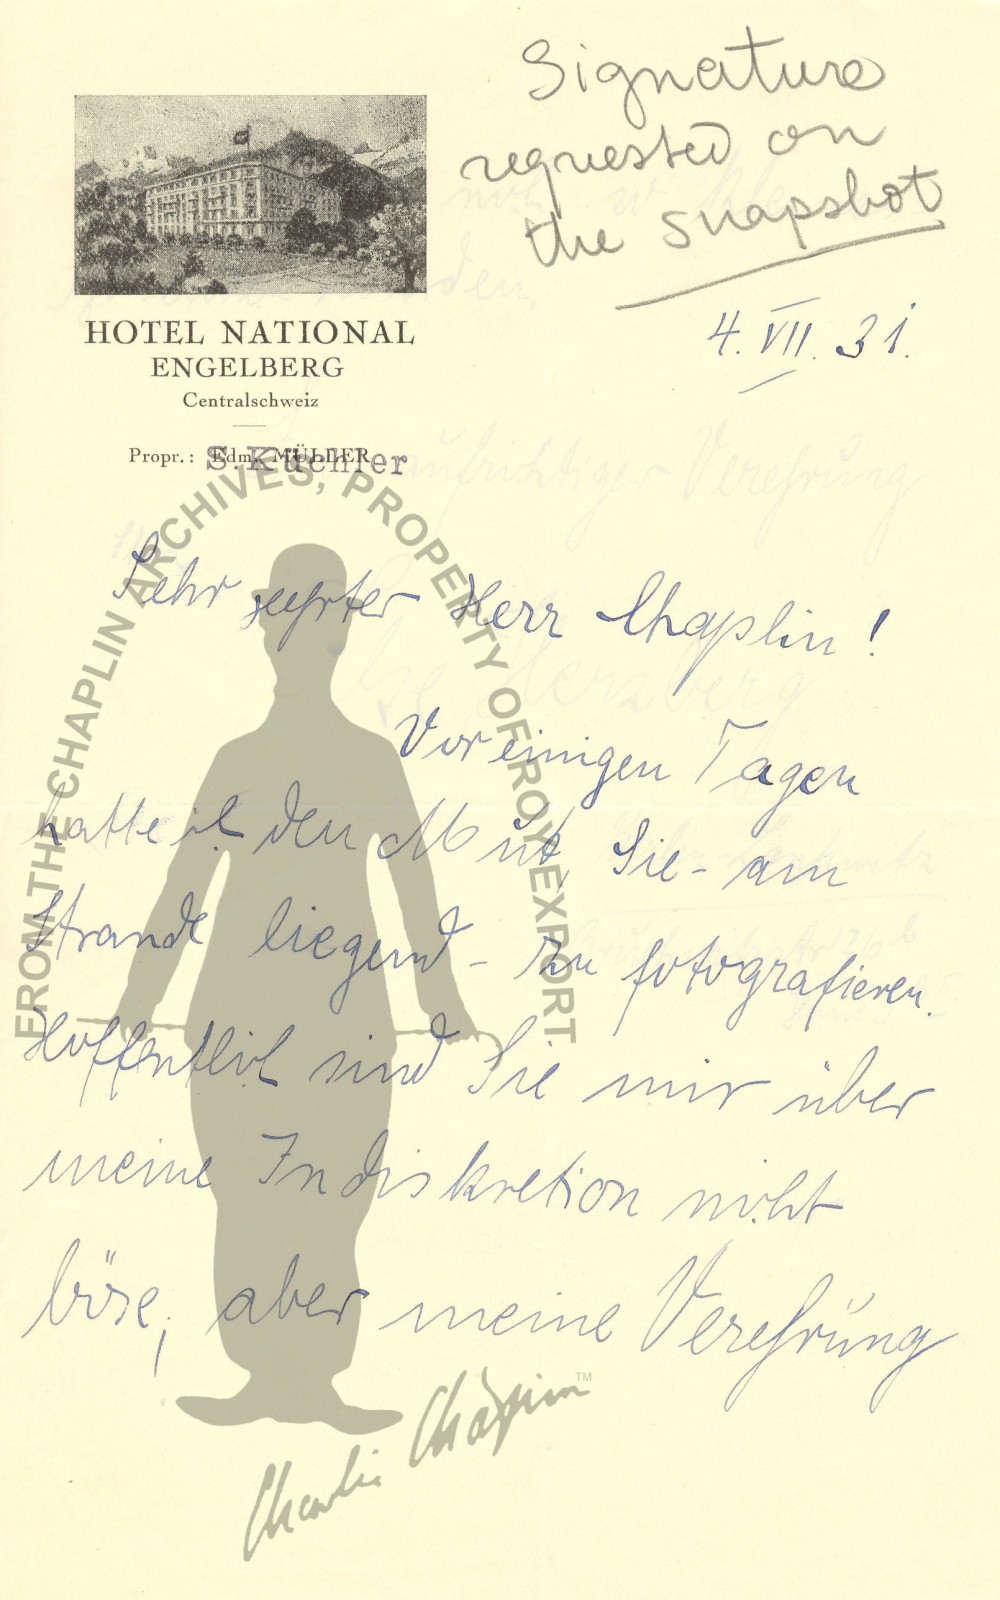 Signature
requested on
the snapshot
HOTEL NATIONAL
ENGELBERG
Centralschweiz
Propr.: Edm. MÜLLER
S. Küchler
4. VII. 31.
Sehr geehrter Herr Chaplin!
Vor einigen Tagen
hatte ich den Mut, Sie - am
Strande liegend - zu fotografieren.
Hoffentlich sind Sie mir über
meine Indiskretion nicht
böse, aber meine Verehrung
FROM THE CHAPLIN ARCHIVES, PROPERTY OF ROY EXPORT
Charlie Chaplin ™
aufrichtiger Verehrung
Herzberg